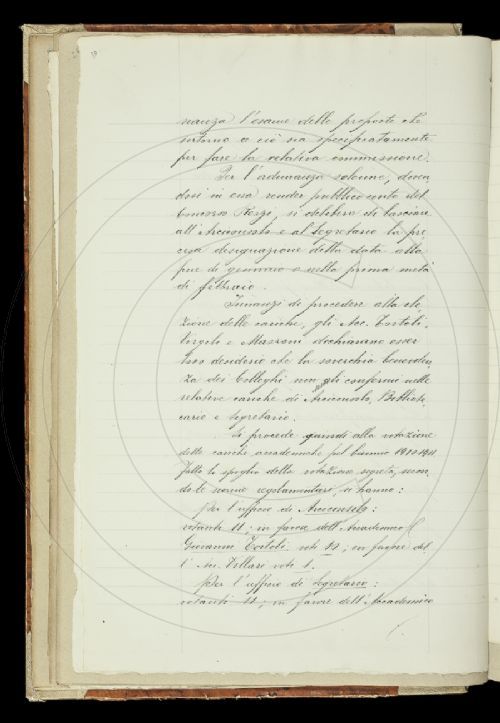 nanza l'esame delle proposte che
intorno a ciò sia
per fare la relativa commissione.
Per l'adunanza solenne, doven
dosi in essa render pubblico conto del
Concorso Rezzi, si delibera di lasciare
all'Arciconsolo e al Segretario la pre
cisa designazione della data alla
fine di gennaio o nella prima metà
di febbraio.
Innanzi di procedere alla ele
zione delle cariche, gli Acc. Tortoli,
e Mazzoni dichiarano esser
loro desiderio che la soverchia benevolen
za dei Colleghi non gli confermi nelle
relative cariche di Arciconsolo, Bibliote
cario e Segretario.
Si procede quindi alla votazione
delle cariche accademiche pel biennio 1910-1911.
Fatto lo spoglio della votazione segreta, secon
do le norme regolamentari, si hanno:
Per l'ufficio di Arciconsolo:
votanti 11; in favore dell'Accademico
Giovanni Tortoli voti 10; in favore del
l'Acc. Villari voti 1.
Per l'ufficio di Segretario:
votanti 11; in favore dell'Accademico